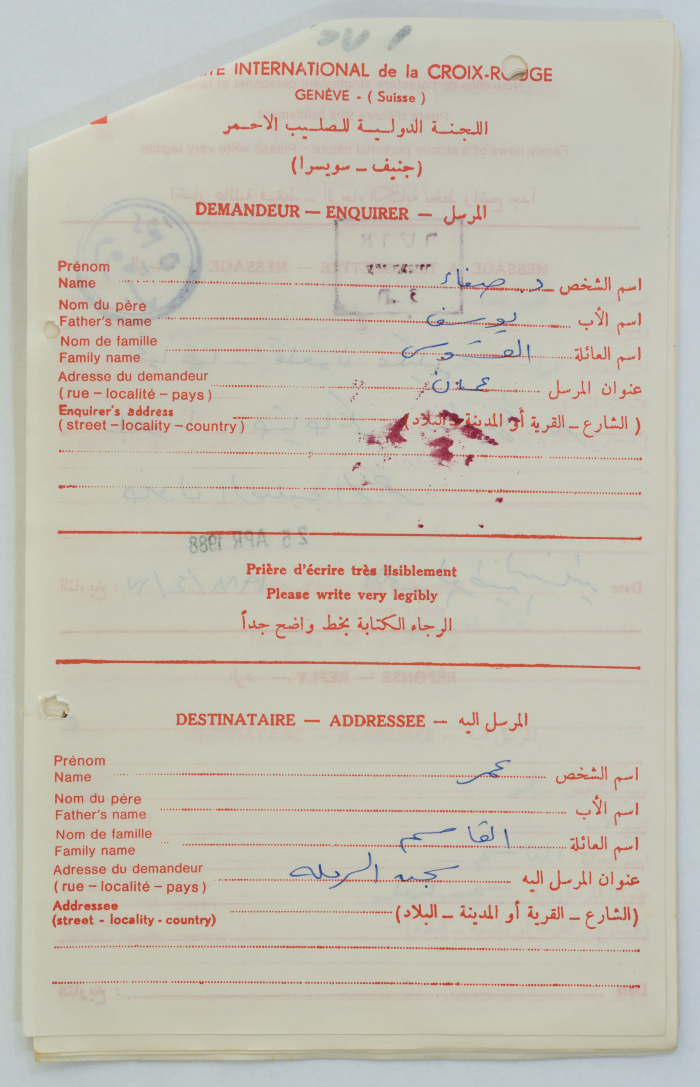 INTERNATIONAL de la CROIX-ROUGE
GENÈVE - ( Suisse )
اللجنة الدولية للصليب الأحمر
(جنيف ـ سويسرا)
DEMANDEUR — ENQUIRER — المرسل
Prénom
Name د. صفاء اسم الشخص
Nom du père
Father's name يوسف اسم الأب
Nom de famille
Family name اسم العائلة
Adresse du demandeur
( rue – localité – pays ) عدن عنوان المرسل
Enquirer's address
( street – locality – country ) ( الشارع ـ القرية أو المدينة ـ البلاد)
25 APR 1988
Prière d'écrire très lisiblement
Please write very legibly
الرجاء الكتابة بخط واضح جداً
DESTINATAIRE — ADDRESSEE — المرسل اليه
Prénom
Name عمر اسم الشخص
Nom du père
Father's name اسم الأب
Nom de famille
Family name القاسم اسم العائلة
Adresse du demandeur
( rue – localité – pays ) سجن الرملة عنوان المرسل اليه
Addressee
(street - locality - country) (الشارع ـ القرية أو المدينة ـ البلاد)